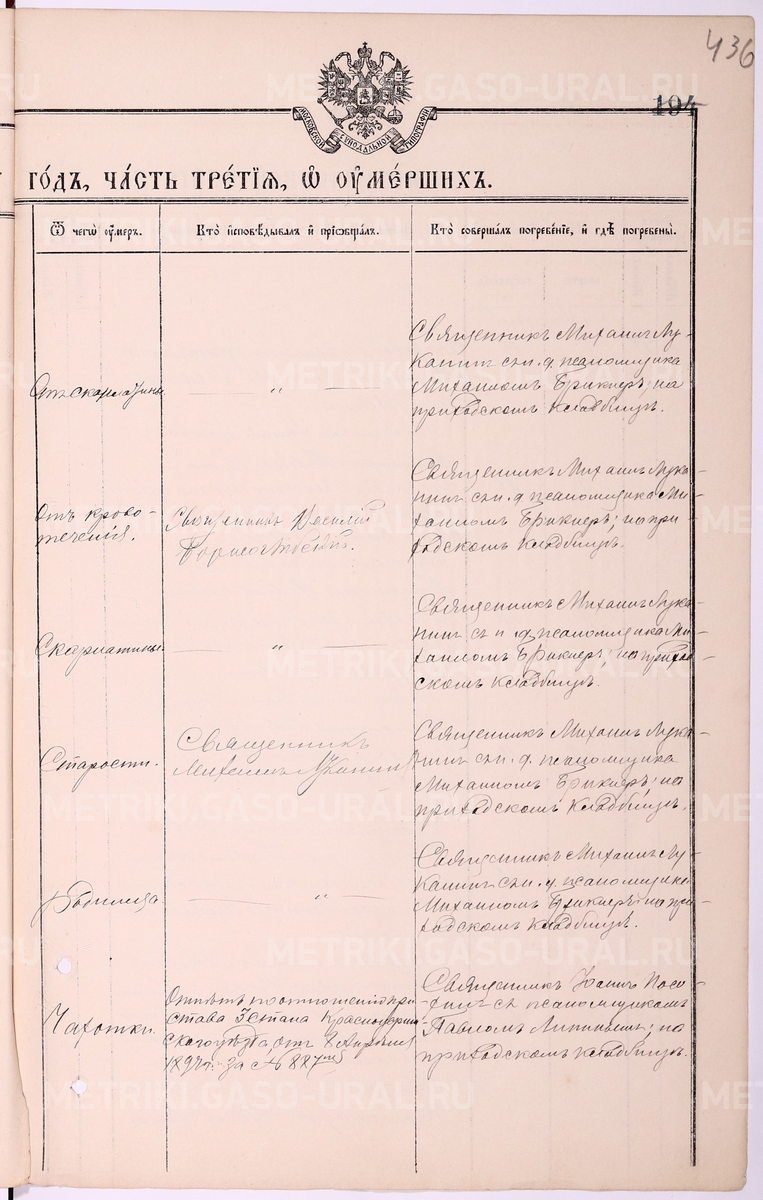 436
194
МОСКОВСКОЙ СѴНОДАЛЬНОЙ ТИПОГРАФІИ
го́дъ, ча́сть тре́тїѧ, ѿ оу҆ме́ршихъ.
Ѿ чегѡ̀ оу҆́меръ.
Кто̀ и҆сповѣ́дывалъ и҆ прїѡбща́лъ.
Кто̀ соверша́лъ погребе́нїе, и҆ гдѣ̀ погребены̀.
Отъ скарлатины
— „ —
Священникъ Михаилъ Лу-
канинъ съ и. д. псаломщика
Михаиломъ Брикнеръ; на
приходскомъ кладбищѣ.
Отъ крово-
теченія.
Священникъ Василій
Священникъ Михаилъ Лука-
нинъ съ и. д. псаломщика Ми-
хаиломъ Брикнеръ; на при
ходскомъ кладбищѣ.
Скарлатины
— „ —
Священникъ Михаилъ Лука-
нинъ съ и д псаломщика Ми-
хаиломъ Брикнеръ; на приход-
скомъ кладбищѣ.
Старости.
Священникъ
Михаилъ Луканинъ
Священникъ Михаилъ Лука-
нинъ съ и. д. псаломщика
Михаиломъ Брикнеръ; на
приходскомъ кладбищѣ.
Родимца
— „ —
Священникъ Михаилъ Лу-
канинъ съ и. д. псаломщика
Михаиломъ Брикнеръ; на при-
ходскомъ кладбищѣ.
Чахотки.
Отпѣтъ по отношенію при
става стана Красноуфим
скаго уѣзда, отъ 8 Апрѣля
за № 887
Священникъ Іоаннъ
съ псаломщикомъ
Павломъ; на
приходскомъ кладбищѣ.
METRIKI.GASO-URAL.RU